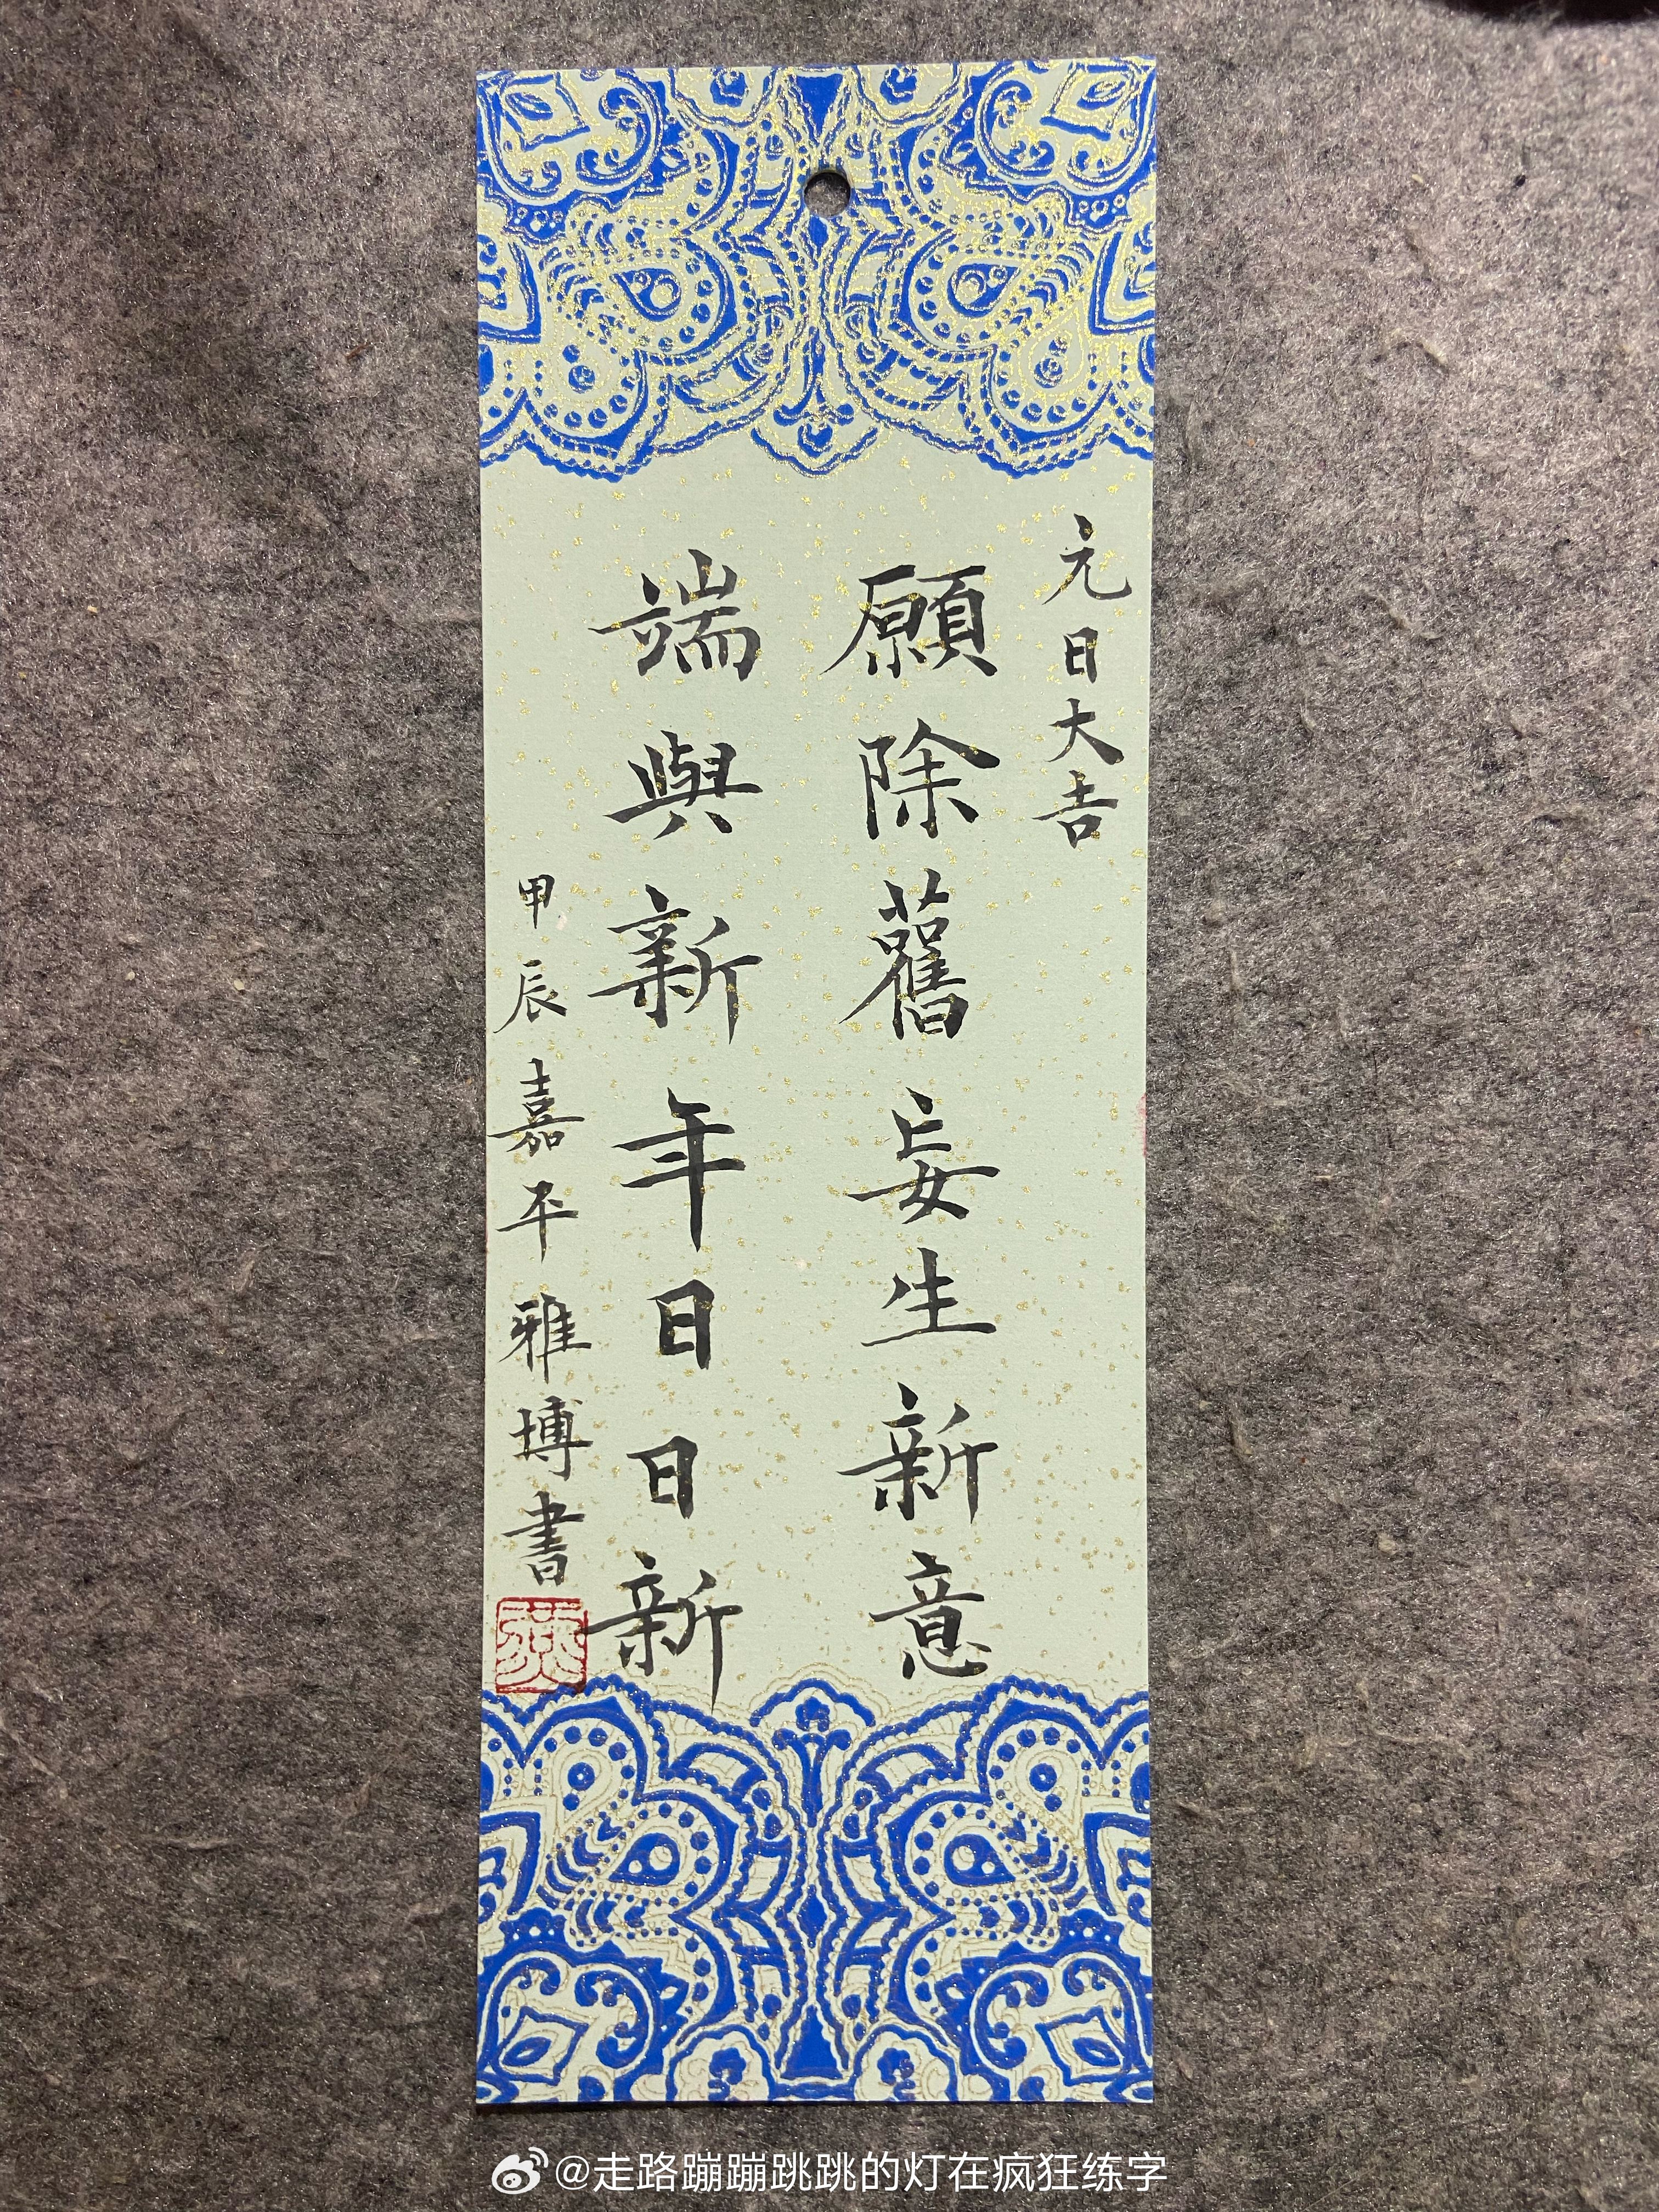 元日大吉
願除舊妄生新意
端與新年日日新
甲辰嘉平雅博書
@走路蹦蹦跳跳的灯在疯狂练字